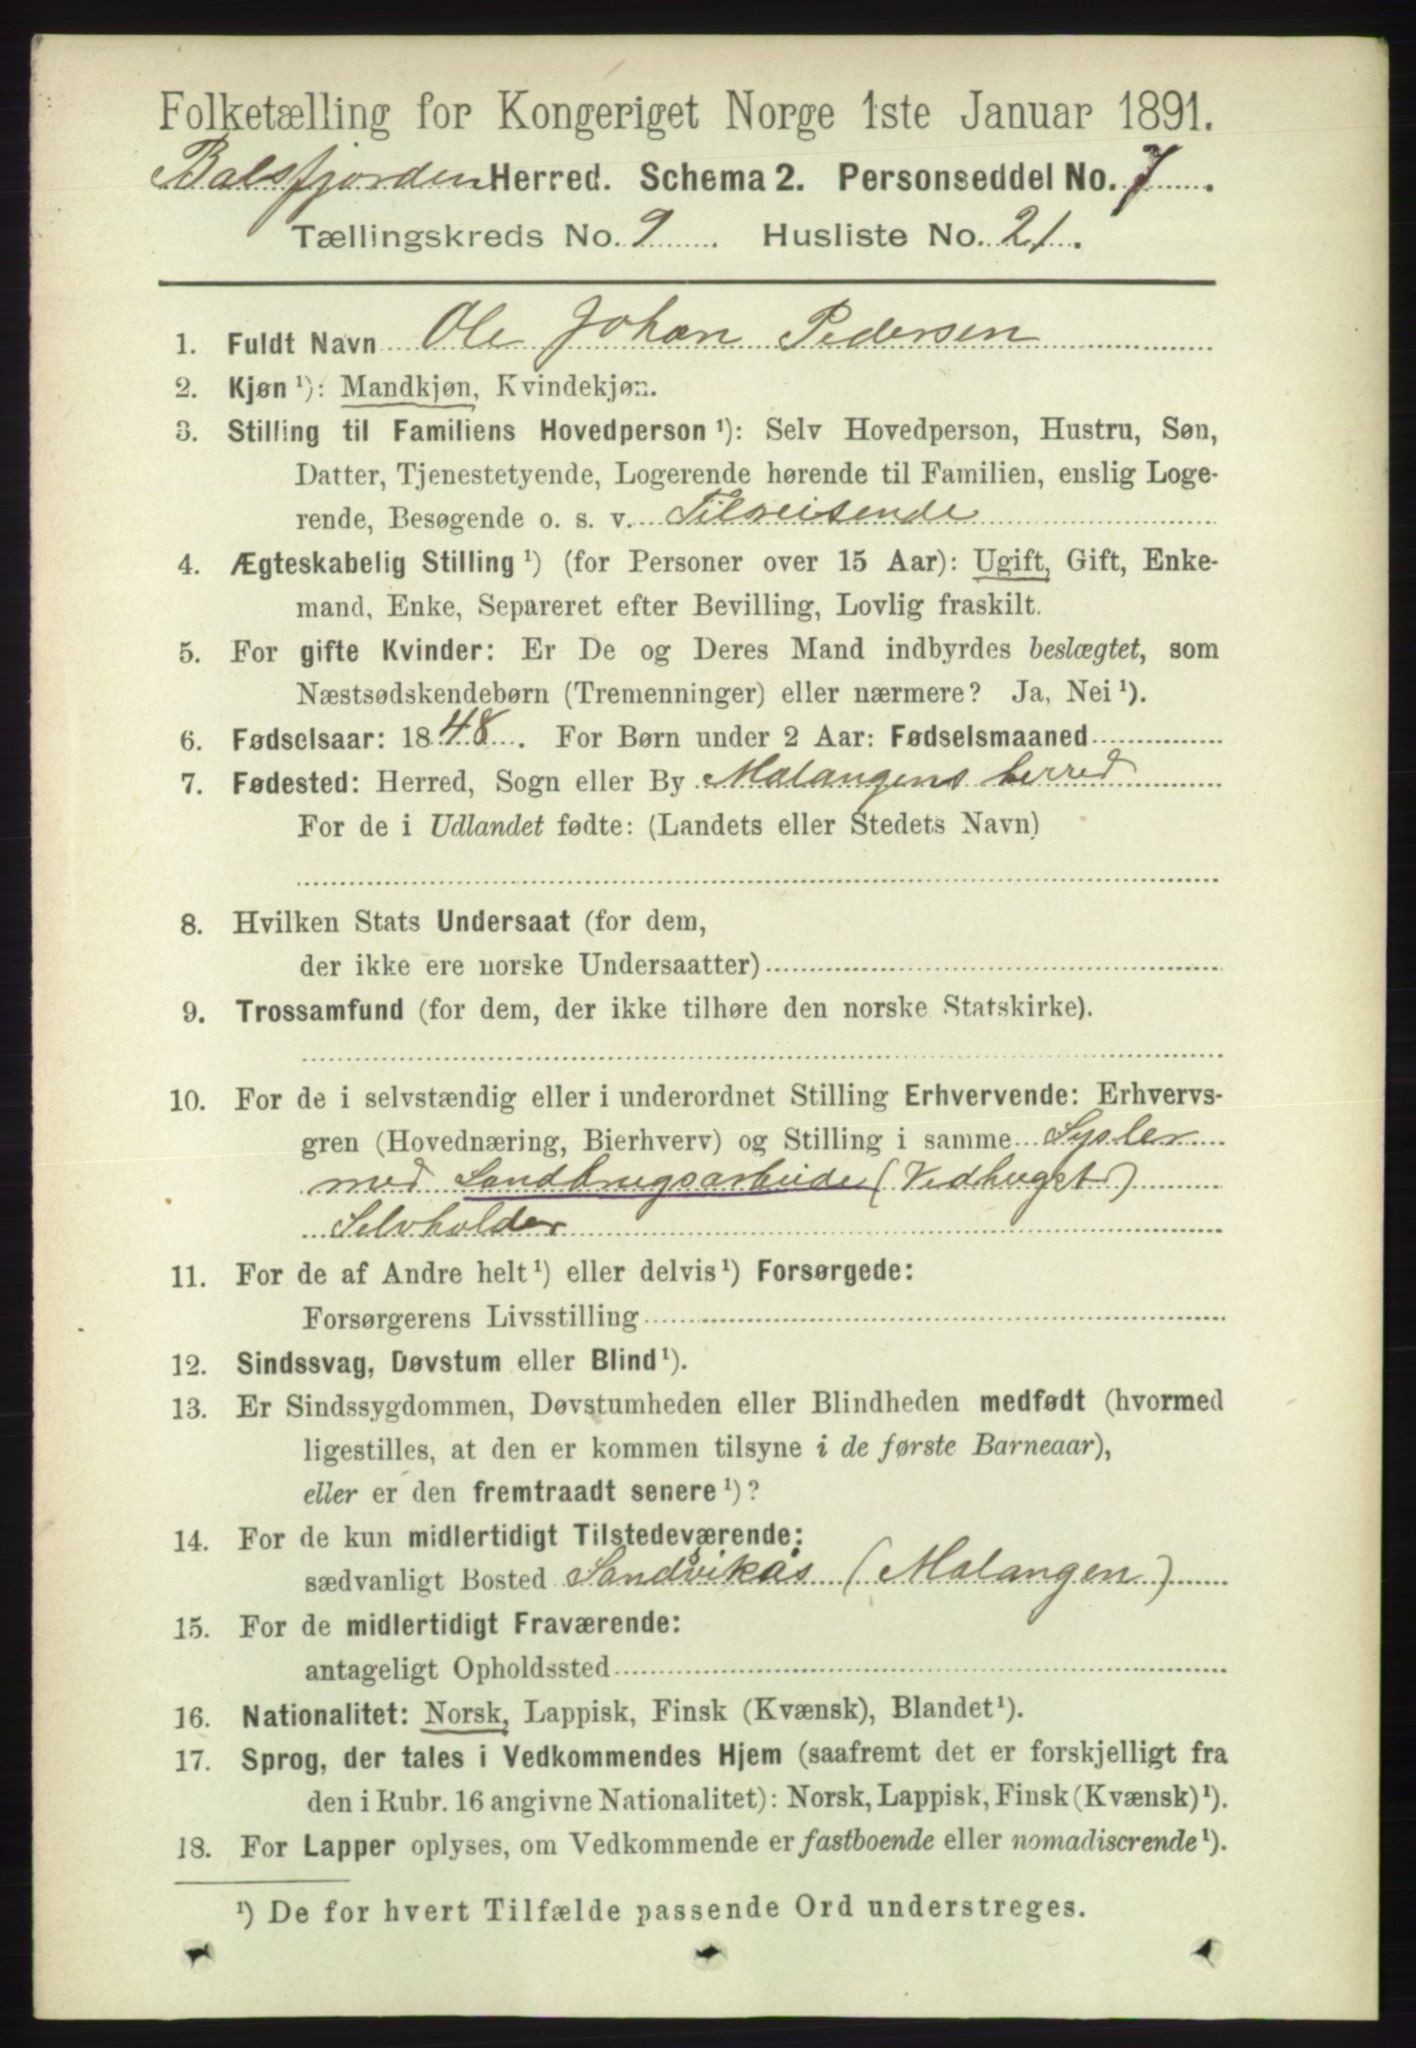 Folketælling for Kongeriget Norge 1ste Januar 1891.
Balsfjorden Herred. Schema 2. Personseddel No. 7
Tællingskreds No. 9 Husliste No. 21.
1. Fuldt Navn Ole Johan Pedersen
2. Kjøn ¹): Mandkjøn, Kvindekjøn.
3. Stilling til Familiens Hovedperson ¹): Selv Hovedperson, Hustru, Søn,
Datter, Tjenestetyende, Logerende hørende til Familien, enslig Loge-
rende, Besøgende o. s. v. Tilreisende
4. Ægteskabelig Stilling ¹) (for Personer over 15 Aar): Ugift, Gift, Enke-
mand, Enke, Separeret efter Bevilling, Lovlig fraskilt.
5. For gifte Kvinder: Er De og Deres Mand indbyrdes beslægtet, som
Næstsødskendebørn (Tremenninger) eller nærmere? Ja, Nei ¹).
6. Fødselsaar: 1848. For Børn under 2 Aar: Fødselsmaaned
7. Fødested: Herred, Sogn eller By Malangens herred
For de i Udlandet fødte: (Landets eller Stedets Navn)
8. Hvilken Stats Undersaat (for dem,
der ikke ere norske Undersaatter)
9. Trossamfund (for dem, der ikke tilhøre den norske Statskirke).
10. For de i selvstændig eller i underordnet Stilling Erhvervende: Erhvervs-
gren (Hovednæring, Bierhverv) og Stilling i samme Sysler
med Landbrugsarbeide (Vedhugst)
Selvholder
11. For de af Andre helt ¹) eller delvis ¹) Forsørgede:
Forsørgerens Livsstilling
12. Sindssvag, Døvstum eller Blind ¹).
13. Er Sindssygdommen, Døvstumheden eller Blindheden medfødt (hvormed
ligestilles, at den er kommen tilsyne i de første Barneaar),
eller er den fremtraadt senere ¹)?
14. For de kun midlertidigt Tilstedeværende:
sædvanligt Bosted Sandvikås (Malangen)
15. For de midlertidigt Fraværende:
antageligt Opholdssted
16. Nationalitet: Norsk, Lappisk, Finsk (Kvænsk), Blandet ¹).
17. Sprog, der tales i Vedkommendes Hjem (saafremt det er forskjelligt fra
den i Rubr. 16 angivne Nationalitet): Norsk, Lappisk, Finsk (Kvænsk) ¹).
18. For Lapper oplyses, om Vedkommende er fastboende eller nomadiserende ¹).
¹) De for hvert Tilfælde passende Ord understreges.